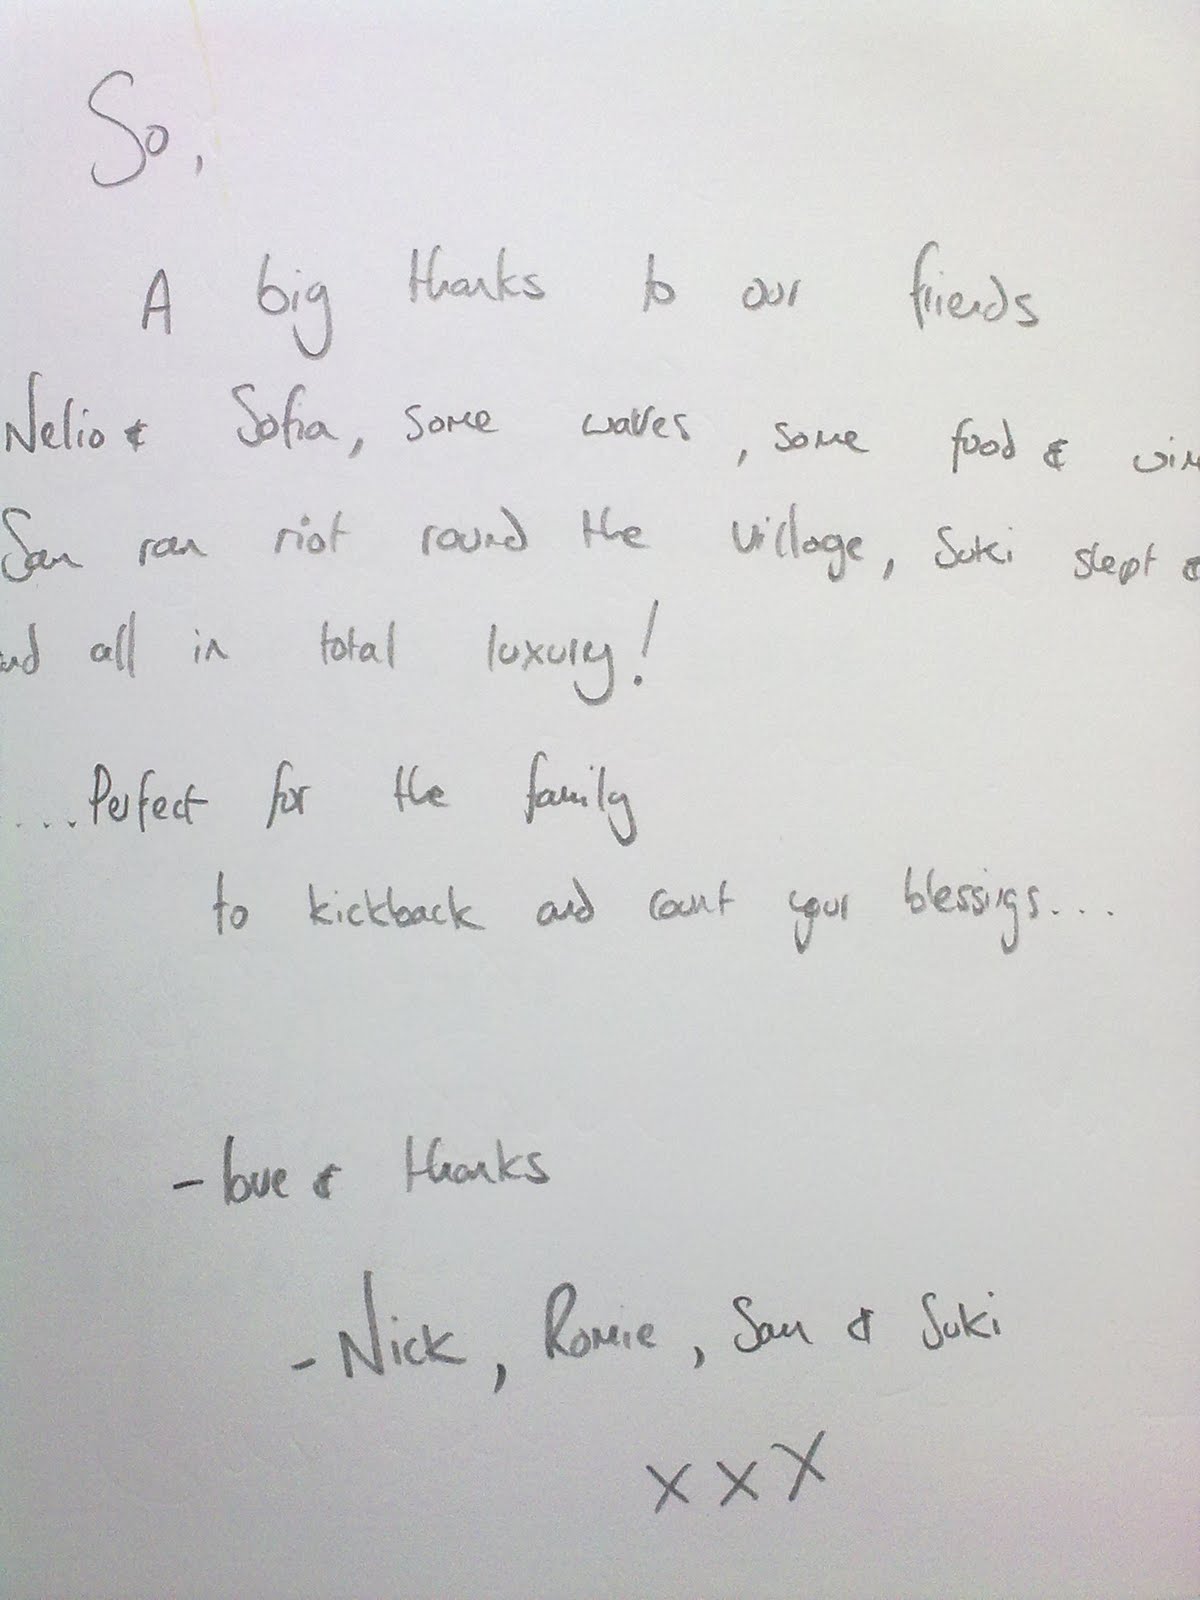 So,
A big thanks to our friends
Nelio & Sofia, some waves, some food & win
Sam ran riot round the village, Suki slept &
nd all in total luxury!
....Perfect for the family
to kickback and count your blessings....
- love & thanks
- Nick, Romie, Sam & Suki
x x x